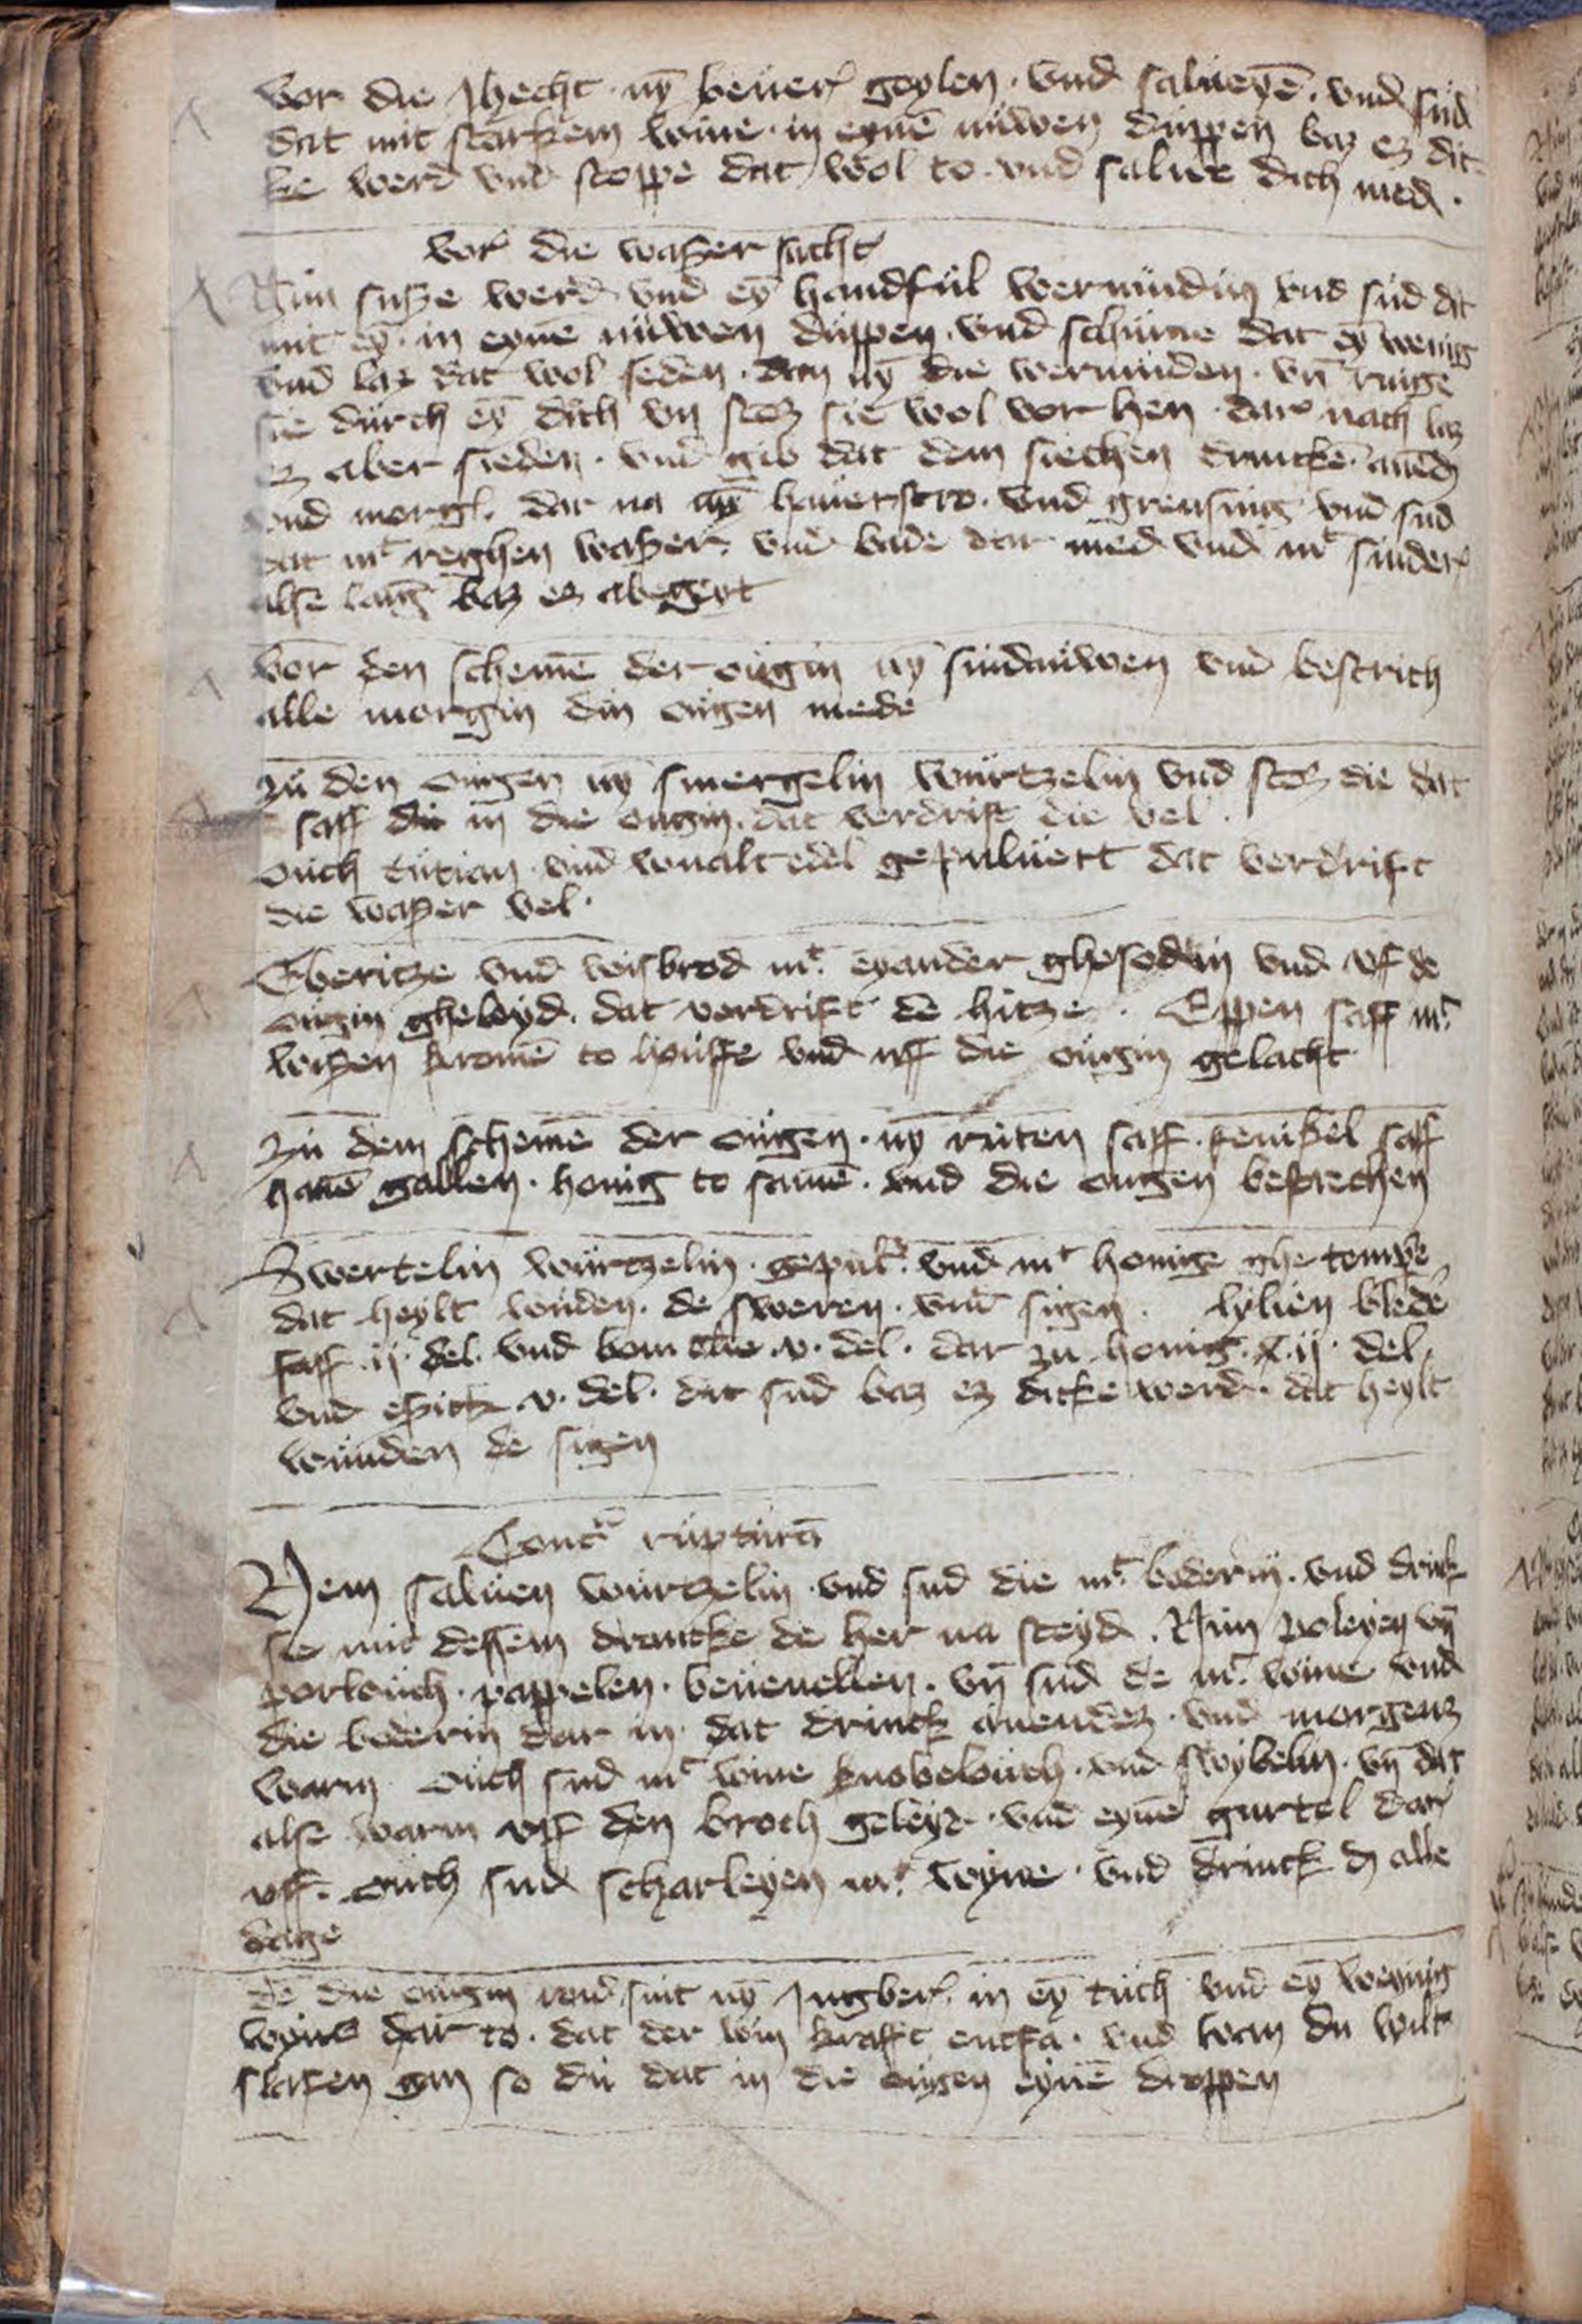 vor die Jhecht nȳ beuer geylen · vnd salueyē · vnd sud
dat mit starkem wine · in eynē nuwen duppen baz ez dic
ke werd vnd stoppe dat wol to · vnd salue dich med ·
vor die waßer sucht
Nim suße werd vnd eȳ handful wermudin vnd sud dat
mit eȳ · in eynē nuwen duppen · vnd schume dat eȳ wenig
vnd laz dat wol seden · dan nȳ die wermuden · vn̄ ringe
sie durch eȳ duch vn̄ stoz sie wol vor hen · dar nach laz
ez aber sieden · vnd gib dat dem siechen drincken auend
vnd morg · dar na nȳ hauerstro · vnd grensing vnd sud
dat mt reghen waßer · vnd bade dar med vnd mt sinder
alse lang baz ez abegeyt
vor den schemē der ougin nȳ sindauwen vnd bestrich
alle morgin din ougen mede
zu den ougen nȳ smergelin wurtzelin vnd stoz die dat
saff du in die ougin · dat verdrift die vel ·
ouch tutian · vnd gepuluert dat verdrift
die waßer vel ·
Eberitze vnd wisbrod mt eyander ghesodin vnd vf de
ougin gheleyd · dat verdrift de hitze · Eppen saff mt
wißen kromē to houffe vnd uff die ougin gelacht
zu dem schemē der ougen · nȳ ruten saff · fenikel saff
hanē gallen · honig to samē · vnd die ougen bestrechen
Swertelin wurtzelin · gepul · vnd mt honige ghe tempe
dat heylt wuden · de sweren · vnd sigen · lylien blede
saff · ij · del · vnd bom olie · v · del · dar zu honig · x · ij · del
vnd eßick · v · del · dat sud baz ez dicke werd · dat heylt
wunden de sigen
Contra rupturā
Nem saluen wurtzelin · vnd sud die mt bederin · vnd drink
sie mit dessem drancke de her na steyd · Nim poleyen vn̄
porlouch · pappelen · beuenellen · vn̄ sud de mt wine vnd
die bederin dar in · dat drinck auendez · vnd morgenz
warm · ouch sud mt wine knobelouch · vnd swybelin · vn̄ dat
alse warm vff den broch geleyt · vnd eynē gurtel dar
vff · ouch sud scharleyen mt wyne · vnd drinck dz alle
dage
dē die ougin rod sint nȳ Jngber · in eȳ tuch vnd eȳ weynig
wyns dar to · dat der win krafft entfa · vnd wan du wilt
slafen gan so du dat in die ougen eynē droppen